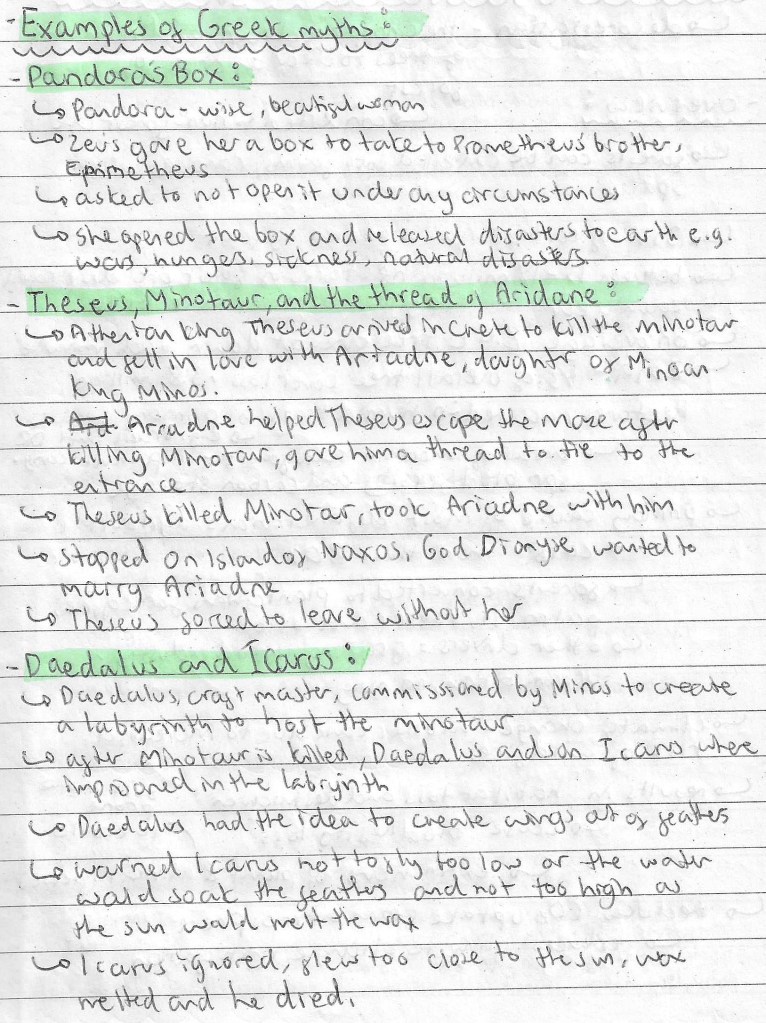 - Examples of Greek myths:
- Pandora's Box:
↳ Pandora - wise, beatiful woman
↳ Zeus gave her a box to take to Prometheus' brotter,
Epimetheus
↳ asked to not open it under any circumstances
↳ she opened the box and released disasters to earth e.g.
wars, hunger, sickness, natural disasters.
- Theseus, Minotaur, and the thread of Aridane:
↳ Athenian king Theseus arrived in Crete to kill the minotaur
and fell in love with Ariadne, daughtr of Minoan
King Minos.
↳ Ariadne helped Theseus escape the maze aftr
killing Minotaur, gave him a thread to tie to the
entrance
↳ Theseus killed Minotaur, took Ariadne with him
↳ stopped on Island of Naxos. God Dionyse wanted to
marry Ariadne
↳ Theseus forced to leave without her
- Daedalus and Icarus:
↳ Daedalus, craft master, commissioned by Minos to create
a labyrinth to host the minotaur
↳ after Minotaur is killed, Daedalus and son Icarus where
imprisoned in the labrynth
↳ Daedalus had the idea to create wings out of feathers
↳ warned Icarus not to fly too low or the water
would soak the feathers and not too high as
the sun would melt the wax
↳ Icarus ignored, flew too close to the sun, wax
melted and he died.